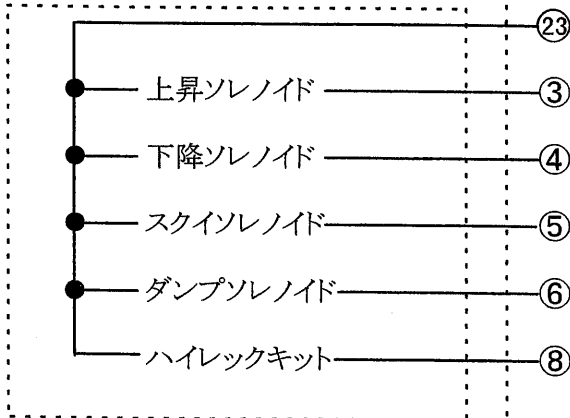 ㉓
上昇ソレノイド ③
下降ソレノイド ④
スクイソレノイド ⑤
ダンプソレノイド ⑥
ハイレックキット ⑧